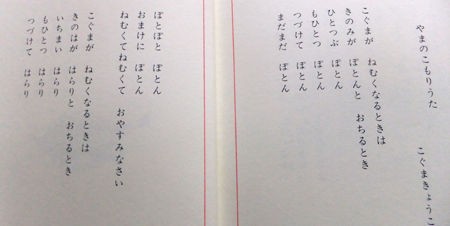 やまのこもりうた
こぐまきょうこ
こぐまが ねむくなるときは
きのみが ぽとんと おちるとき
ひとつぶ ぽとん
もひとつ ぽとん
つづけて ぽとん
まだまだ ぽとん
ぽとぽと ぽとん
おまけに ぽとん
ねむくてねむくて おやすみなさい
こぐまが ねむくなるときは
きのはが はらりと おちるとき
いちまい はらり
もひとつ はらり
つづけて はらり